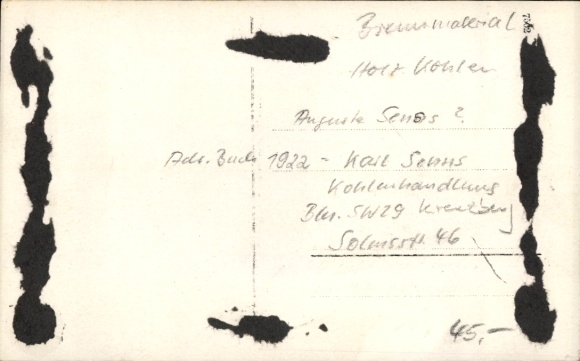 Brennmaterial
Holz Kohlen
Auguste Senss ?
Adr. Buch 1922 - Karl Senss
Kohlenhandlung
Bln. SW29 Kreuzberg
Solmsstr. 46
45,-